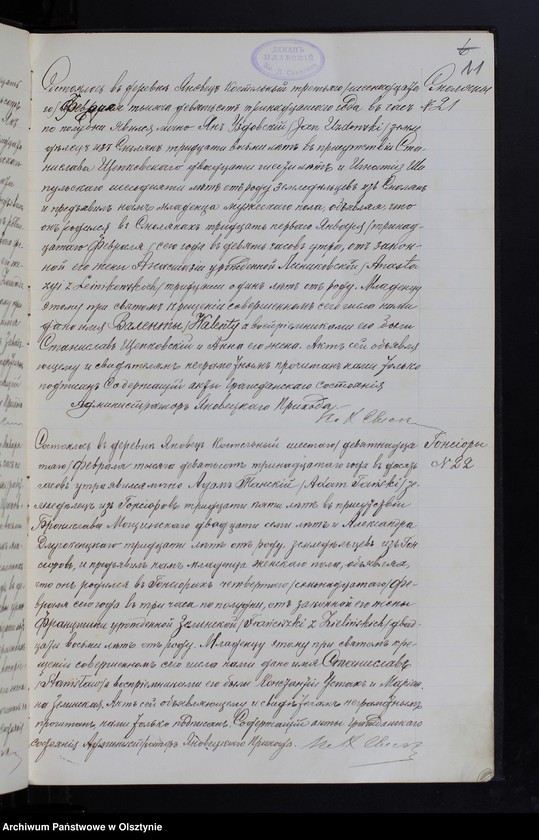 11
ДЕКАНЪ
Состоялось въ деревнѣ Яновецъ Костельный третьяго /шестнадцата
Смоляны
го/ Февраля тысяча девятьсотъ тринадцатаго года въ часъ
№ 21
по полудни Явился лично Янъ Уздовскій /Jan Uzdowski/ земле
дѣлецъ изъ Смолянъ тридцати восьми лѣтъ въ присутствіи Ста
нислава Щепковскаго двадцати шести лѣтъ и Игнатія
пульскаго шестидесяти лѣтъ отъ роду земледѣльцевъ изъ Смолянъ
и предъявилъ намъ младенца мужескаго пола, объявляя, что
онъ родился въ Смолянахъ тридцать перваго Января /тринад-
цатаго Февраля/ сего года въ девять часовъ утра, отъ закон-
ной его жены Анастазіи урожденной /Anasta
zyi z / тридцати одинъ лѣтъ отъ роду. Младенцу
этому при святомъ крещеніи совершенномъ сего числа нами
дано имя Валенты /Walenty/ а воспріемниками его были
Станиславъ Щепковскій и Анна его жена. Актъ сей объявля
ющему и свидѣтелямъ неграмотнымъ прочитанъ нами только
подписанъ Содержащій акты Гражданскаго состоянія
Администраторъ Яновецкаго Прихода
Состоялось въ деревнѣ Яновецъ Костельный шестаго /девятнадца
Гонсіоры
таго/ Февраля тысяча девятьсотъ тринадцатаго года въ десять
№ 22
часовъ утра явился лично Адамъ /Adam / зе-
мледѣлецъ изъ Гонсіоровъ тридцати пяти лѣтъ въ присутствіи
Бронислава двадцати семи лѣтъ и Александра
тридцати лѣтъ отъ роду, земледѣльцевъ изъ Гон
сіоровъ, и предъявилъ намъ младенца женскаго пола, объявляя,
что онъ родился въ Гонсіорахъ четвертаго /семнадцатаго/ Фе-
враля сего года въ три часа по полудни, отъ законной его жены
Францишки урожденной Зелинской /Franciszki z Zielińskich/ двад-
цати восьми лѣтъ отъ роду. Младенцу этому при святомъ кре-
щеніи совершенномъ сего числа нами дано имя Станиславъ
/Stanisław/ а воспріемниками его были Констанцій и Маріан-
на Зелинская. Актъ сей объявляющему и свидѣтелямъ неграмотнымъ
прочитанъ, нами только подписанъ. Содержащій акты Гражданскаго
состоянія Администраторъ Яновецкаго Прихода.
Archiwum Państwowe w Olsztynie